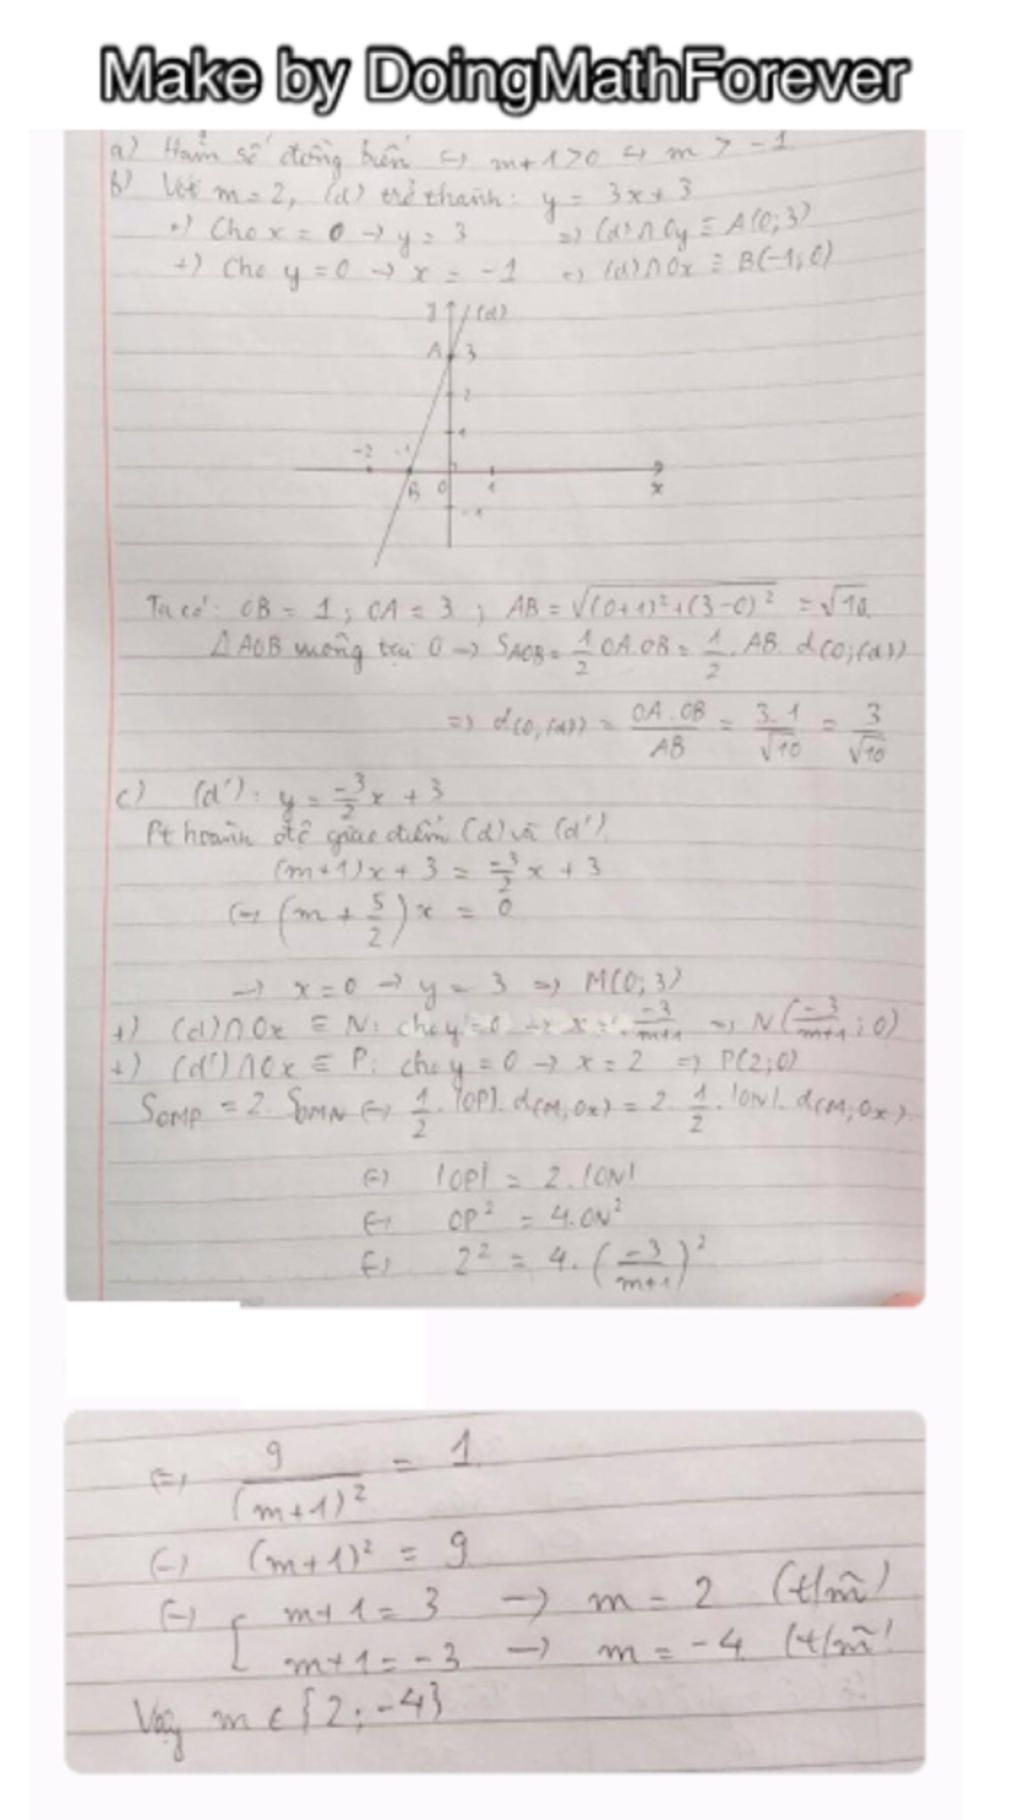 Make by DoingMathForever
a) Hàm số đồng biến ⇔ m+1>0 ⇔ m > -1
b) Với m=2, (d) trở thành: y = 3x+3
+) Cho x = 0 → y = 3 ⇒ (d)∩Oy ≡ A(0;3)
+) Cho y=0 → x = -1 ⇒ (d)∩Ox ≡ B(-1;0)
y (d)
A 3
2
1
-2 -1
B 0 1 x
-1
Ta có: OB = 1; OA = 3; AB = √((0+1)²+(3-0)²) = √10
ΔAOB vuông tại O → S_AOB = 1/2 OA.OB = 1/2. AB. d(O;(d))
⇒ d(O,(d)) = OA.OB/AB = 3.1/√10 = 3/√10
c) (d'): y = -3/2 x + 3
Pt hoành độ giao điểm (d) và (d')
(m+1)x + 3 = -3/2 x + 3
⇔ (m + 5/2)x = 0
→ x=0 → y = 3 ⇒ M(0;3)
+) (d)∩Ox ≡ N: cho y=0 → x = -3/m+1 ⇒ N(-3/m+1; 0)
+) (d')∩Ox ≡ P: cho y=0 → x=2 ⇒ P(2;0)
S_OMP = 2. S_OMN ⇔ 1/2. |OP|. d(M;Ox) = 2. 1/2. |ON|. d(M;Ox).
⇔ |OP| = 2.|ON|
⇔ OP² = 4.ON²
⇔ 2² = 4. (-3/m+1)²
⇔ 9/(m+1)² = 1
⇔ (m+1)² = 9
⇔ [ m+1=3 → m = 2 (t/m)
m+1=-3 → m = -4 (t/m)
Vậy m ∈ {2;-4}